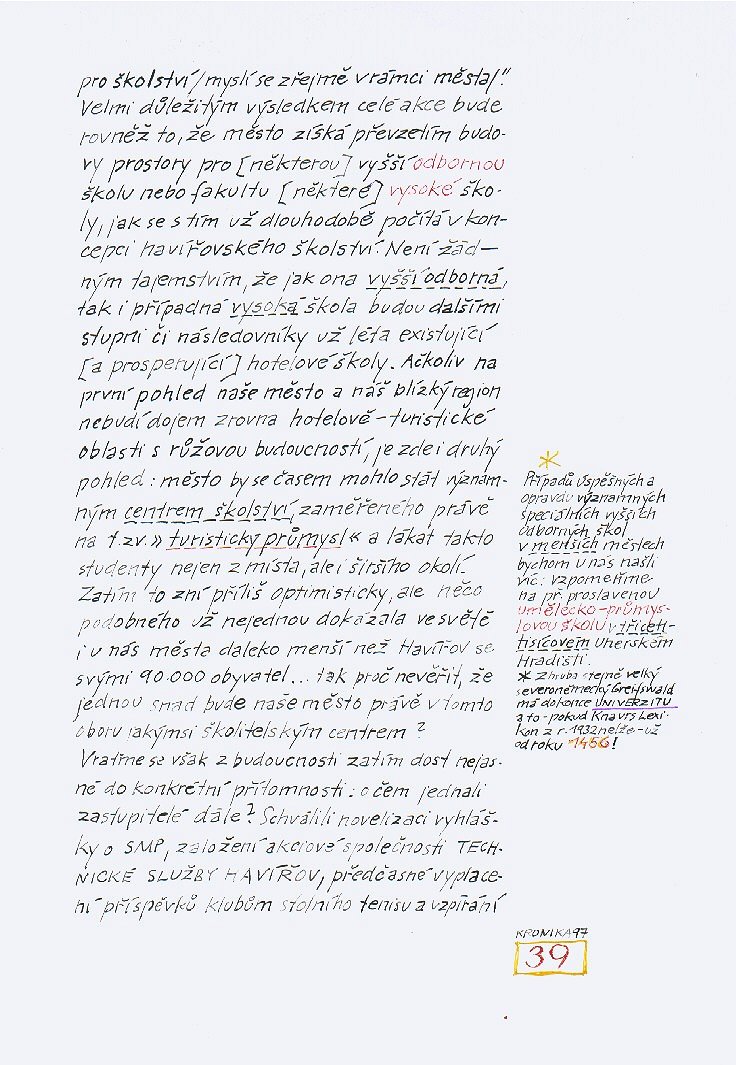 pro školství/myslí se zřejmě v rámci města/."
Velmi důležitým výsledkem celé akce bude
rovněž to, že město získá převzetím budo-
vy prostory pro [některou] vyšší odbornou
školu nebo fakultu [některé] vysoké ško-
ly, jak se s tím už dlouhodobě počítá v kon-
cepci havířovského školství. Není žád-
ným tajemstvím, že jak ona vyšší odborná,
tak i případná vysoká škola budou dalšími
stupni či následovníky už léta existující
[a prosperující] hotelové školy. Ačkoliv na
první pohled naše město a náš blízký region
nebudí dojem zrovna hotelově-turistické
oblasti s růžovou budoucností, je zde i druhý
pohled: město by se časem mohlo stát význam-
ným centrem školství, zaměřeného právě
na t.zv. » turistický průmysl « a lákat takto
studenty nejen z místa, ale i širšího okolí.
Zatím to zní příliš optimisticky, ale něco
podobného už nejednou dokázala ve světě
i u nás města daleko menší než Havířov se
svými 90.000 obyvatel... tak proč nevěřit, že
jednou snad bude naše město právě v tomto
oboru jakýmsi školitelským centrem?
Vraťme se však z budoucnosti zatím dost nejas-
né do konkrétní přítomnosti: o čem jednali
zastupitelé dále? Schválili novelizaci vyhláš-
ky o SMP, založení akciové společnosti TECH-
NICKÉ SLUŽBY HAVÍŘOV, předčasné vyplace-
ní příspěvků klubům stolního tenisu a vzpírání
*
Případů úspěšných a
opravdu významných
speciálních vyšších
odborných škol
v menších městech
bychom u nás našli
víc: vzpomeňme
na př. proslavenou
umělecko-průmys-
lovou školu v třiceti-
tisícovém Uherském
Hradišti.
* Zhruba stejně velký
severoněmecký Greifswald
má dokonce UNIVERZITU
a to - pokud Knaurs Lexi-
kon z r. 1932 nelže - už
od roku 1456!
KRONIKA 97
39